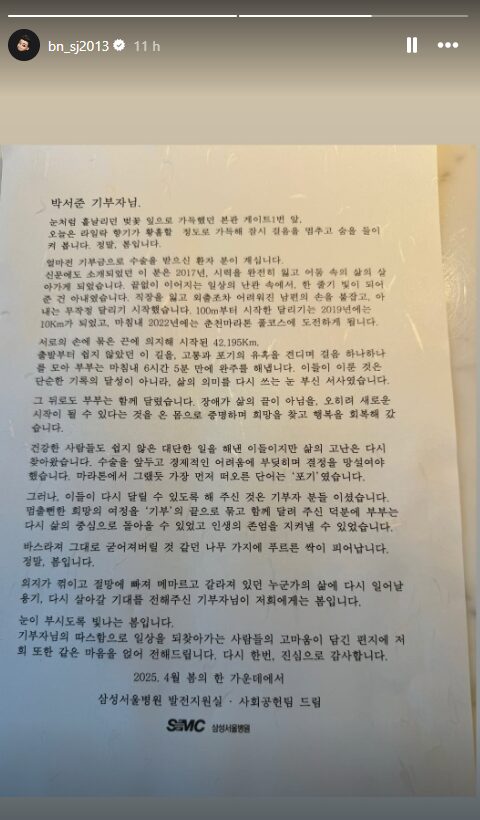 bn_sj2013 11 h
박서준 기부자님.
눈처럼 흩날리던 벚꽃 잎으로 가득했던 본관 게이트1번 앞,
오늘은 라일락 향기가 황홀할 정도로 가득해 잠시 걸음을 멈추고 숨을 들이
켜 봅니다. 정말, 봄입니다.
얼마전 기부금으로 수술을 받으신 환자 분이 계십니다.
신문에도 소개되었던 이 분은 2017년, 시력을 완전히 잃고 어둠 속의 삶의 살
아가게 되었습니다. 끝없이 이어지는 일상의 난관 속에서, 한 줄기 빛이 되어
준 건 아내였습니다. 직장을 잃고 외출조차 어려워진 남편의 손을 붙잡고, 아
내는 무작정 달리기 시작했습니다. 100m부터 시작한 달리기는 2019년에는
10Km가 되었고, 마침내 2022년에는 춘천마라톤 풀코스에 도전하게 됩니다.
서로의 손에 묶은 끈에 의지해 시작된 42.195Km.
출발부터 쉽지 않았던 이 길을, 고통과 포기의 유혹을 견디며 걸음 하나하나
를 모아 부부는 마침내 6시간 5분 만에 완주를 해냅니다. 이들이 이룬 것은
단순한 기록의 달성이 아니라, 삶의 의미를 다시 쓰는 눈 부신 서사였습니다.
그 뒤로도 부부는 함께 달렸습니다. 장애가 삶의 끝이 아님을, 오히려 새로운
시작이 될 수 있다는 것을 온 몸으로 증명하며 희망을 찾고 행복을 회복해 갔
습니다.
건강한 사람들도 쉽지 않은 대단한 일을 해낸 이들이지만 삶의 고난은 다시
찾아왔습니다. 수술을 앞두고 경제적인 어려움에 부딪히며 결정을 망설여야
했습니다. 마라톤에서 그랬듯 가장 먼저 떠오른 단어는 '포기'였습니다.
그러나, 이들이 다시 달릴 수 있도록 해 주신 것은 기부자 분들 이셨습니다.
멈출뻔한 희망의 여정을 '기부'의 끈으로 묶고 함께 달려 주신 덕분에 부부는
다시 삶의 중심으로 돌아올 수 있었고 인생의 존엄을 지켜낼 수 있었습니다.
바스라져 그대로 굳어져버릴 것 같던 나무 가지에 푸르른 싹이 피어납니다.
정말, 봄입니다.
의지가 꺾이고 절망에 빠져 메마르고 갈라져 있던 누군가의 삶에 다시 일어날
용기, 다시 살아갈 기대를 전해주신 기부자님이 저희에게는 봄입니다.
눈이 부시도록 빛나는 봄입니다.
기부자님의 따스함으로 일상을 되찾아가는 사람들의 고마움이 담긴 편지에 저
희 또한 같은 마음을 얹어 전해드립니다. 다시 한번, 진심으로 감사합니다.
2025. 4월 봄의 한 가운데에서
삼성서울병원 발전지원실 · 사회공헌팀 드림
SMC 삼성서울병원